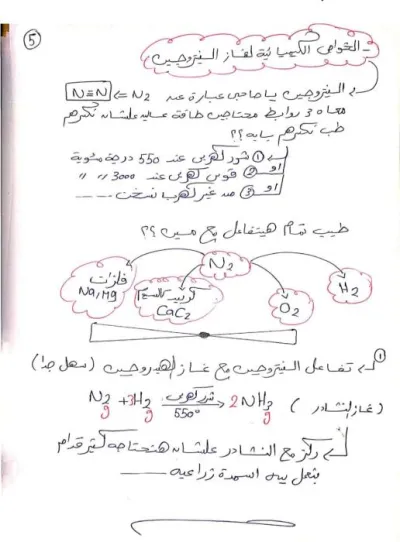 ⑤
- الخواص الكيميائية لغاز النيتروجين
النيتروجين يا صاحبى عبارة عنه N₂ => N≡N
معاه 3 روابط محتاجين طاقة عاليه علشان نكسرهم
طب نكسرهم بايه؟؟
① شرر كهربى عند 550 درجة مئوية
او ② قوس كهربى عند 3000 〃 〃
او ③ من غير كهربا نسخن ------
طيب تمام هيتفاعل مع مين؟؟
N₂
فلزات Na, Mg
كربيد كالسيوم CaC₂
O₂
H₂
① تفاعل النيتروجين مع غاز الهيدروجين (سهل جدا)
N₂ g + 3H₂ g شرر كهربى 550° → 2NH₃ g (غاز النشادر)
ركز مع النشادر علشان هنحتاجه كتير قدام
بنعمل بيه اسمدة زراعيه ------